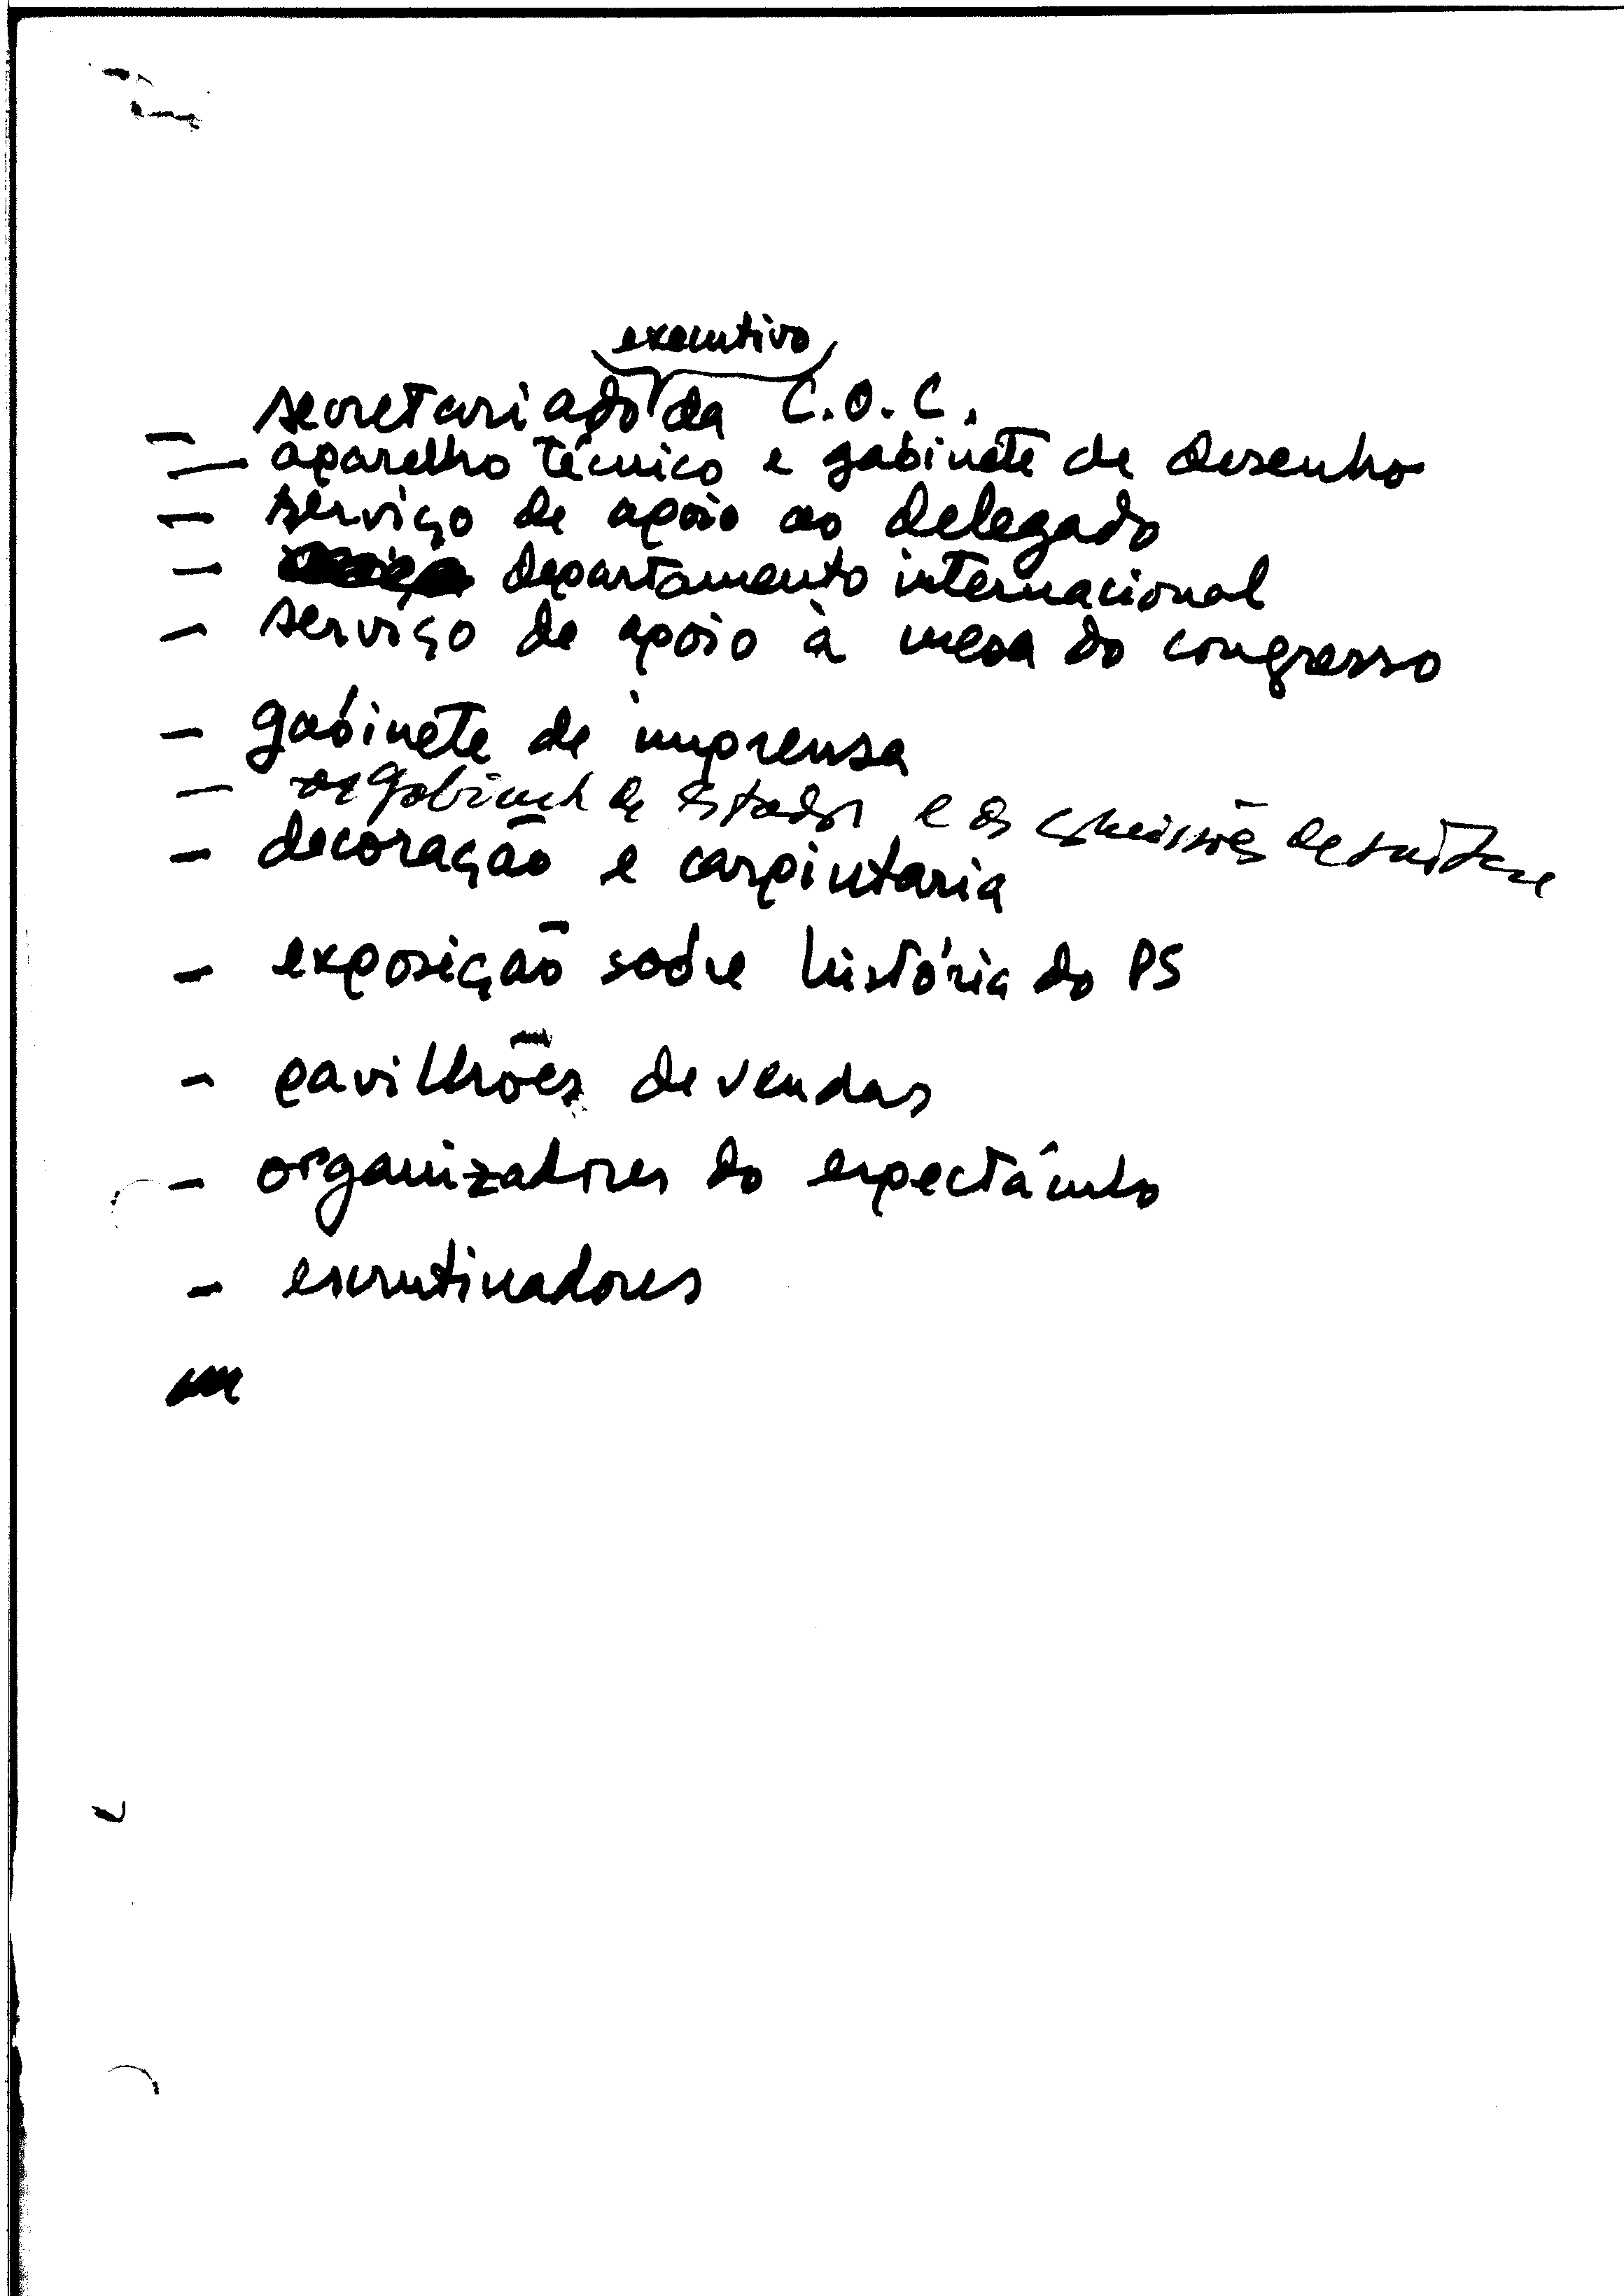 executivo
– secretariado da C.O.C.
– aparelho técnico e gabinete de desenho
– serviço de apoio ao delegado
– departamento internacional
– serviço de apoio à mesa do congresso
– gabinete de imprensa
– gabinete de Estudos e as comissões de
– decoração e carpintaria
– exposição sobre história do PS
– pavilhões de vendas
– organizadores do espectáculo
– escrutinadores